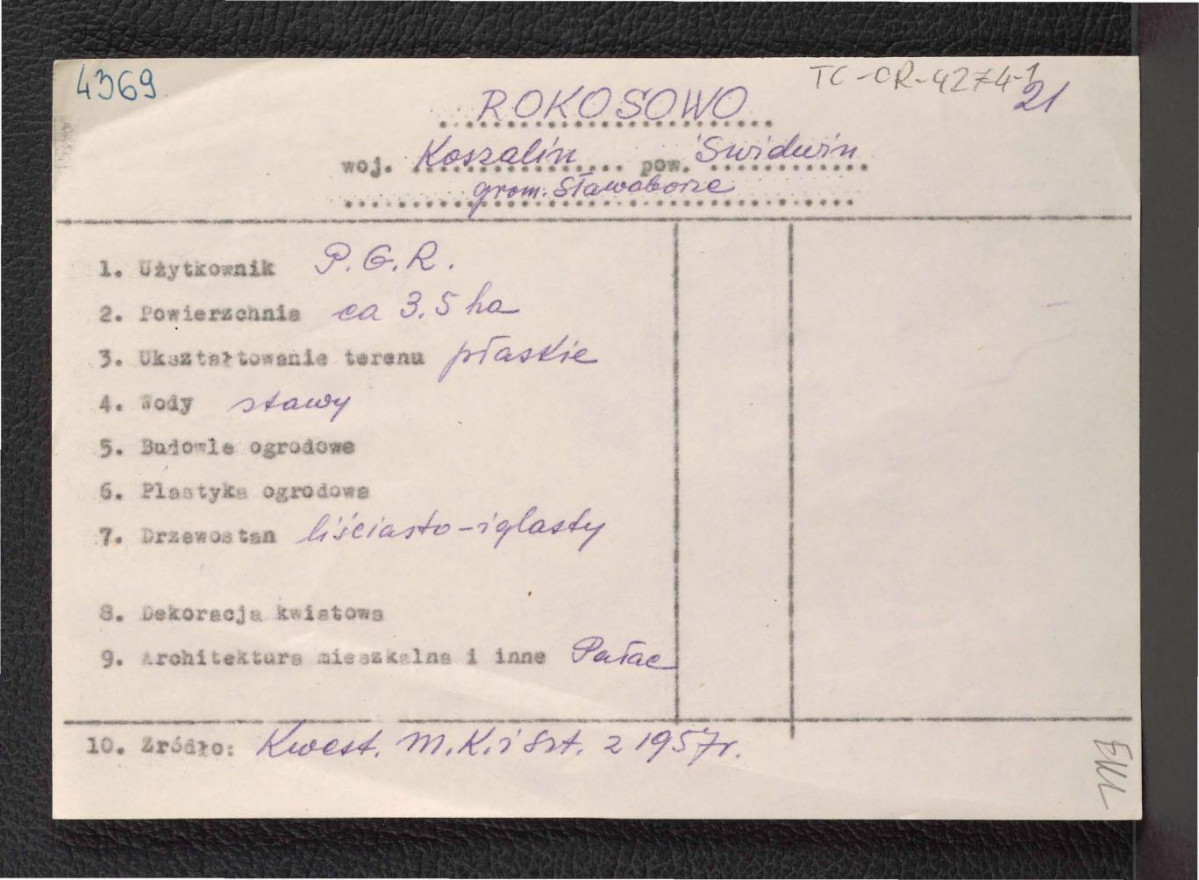 4369
TC-CR-4274-1
21
ROKOSOWO
woj. Koszalin pow. Świdwin
grom. Sławoborze
1. Użytkownik P.G.R.
2. Powierzchnia ca 3.5 ha
3. Ukształtowanie terenu płaskie
4. Wody stawy
5. Budowle ogrodowe
6. Plastyka ogrodowa
7. Drzewostan liściasto-iglasty
8. Dekoracja kwiatowa
9. Architektura mieszkalna i inne Pałac
10. Źródło: Kwest. M.K. i Szt. z 1957r.